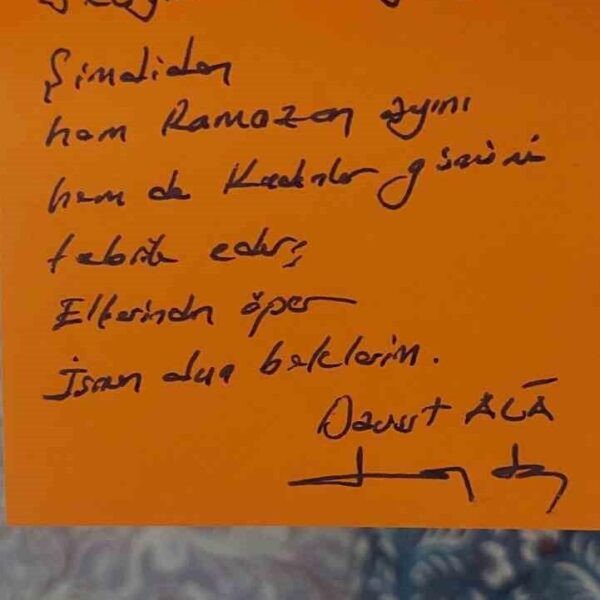 Şimdiden
hem Ramazan ayını
hem de Kadınlar gününü
tebrik eder,
Ellerinden öper
dua beklerim.
Davut ALĀ